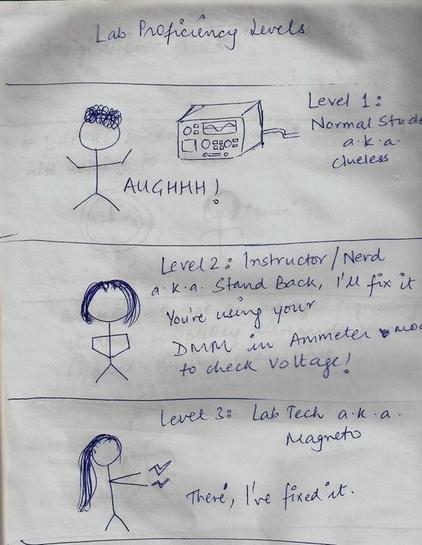 Lab Proficiency Levels
Level 1:
Normal Stude
a.k.a.
clueless
AUGHHH!
Level 2: Instructor/Nerd
a.k.a. Stand Back, I'll fix it
You're using your
DMM in Ammeter mod
to check voltage!
Level 3: Lab Tech a.k.a.
Magneto
There, I've fixed it.